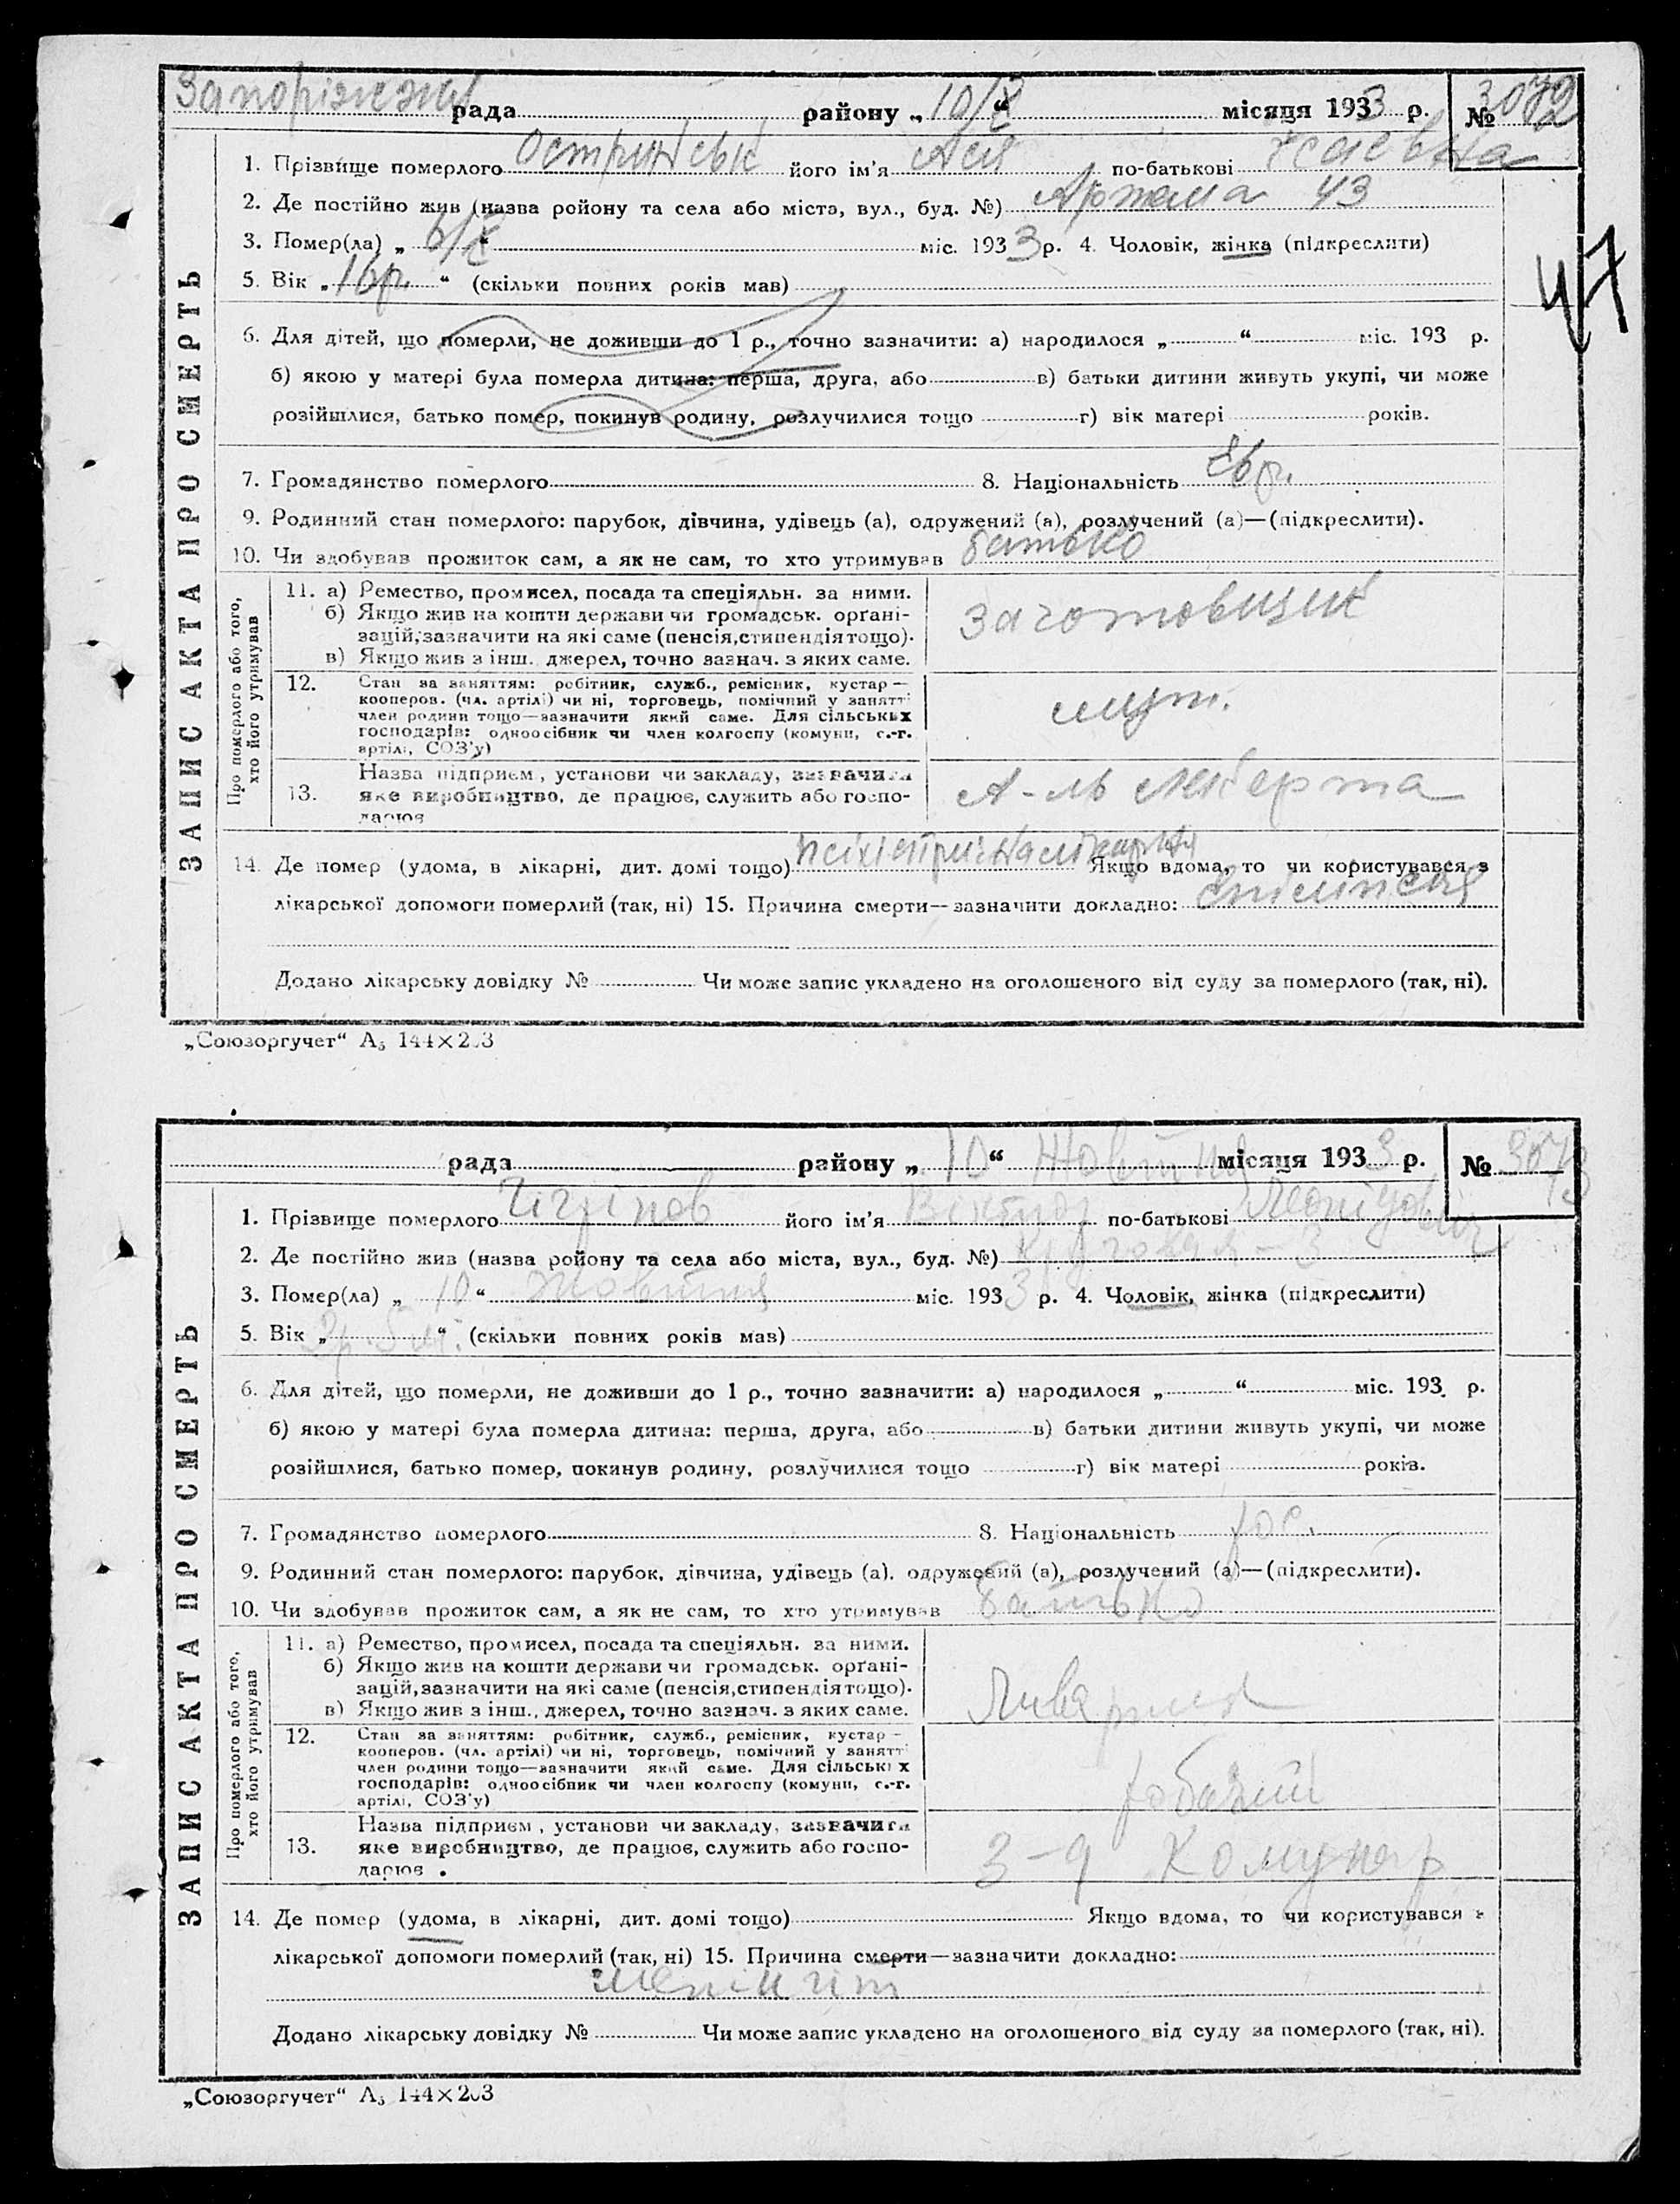 Запоріжжя рада району „10/X“ місяця 1933 р. № 3072
1. Прізвище померлого його ім'я Ася по-батькові Ісаевна
2. Де постійно жив (назва ройону та села або міста, вул., буд. №) Артема 43
3. Помер(ла) „6/X“ міс. 1933 р. 4. Чоловік, жінка (підкреслити)
5. Вік „16 р.“ (скільки повних років мав)
47
6. Для дітей, що померли, не доживши до 1 р., точно зазначити: а) народилося „ “ міс. 193 р.
б) якою у матері була померла дитина: перша, друга, або в) батьки дитини живуть укупі, чи може
розійшлися, батько помер, покинув родину, розлучилися тощо г) вік матері років.
7. Громадянство померлого 8. Національність Євр.
9. Родинний стан померлого: парубок, дівчина, удівець (а), одружений (а), розлучений (а)—(підкреслити).
10. Чи здобував прожиток сам, а як не сам, то хто утримував батько
ЗАПИС АКТА ПРО СМЕРТЬ
Про померлого або того,
хто його утримував
11. а) Ремество, промисел, посада та спеціяльн. за ними.
б) Якщо жив на кошти держави чи громадськ. орґані-
зацій, зазначити на які саме (пенсія, стипендія тощо).
в) Якщо жив з інш. джерел, точно зазнач. з яких саме.
заготовщик
12. Стан за заняттям: робітник, служб., ремісник, кустар—
кооперов. (чл. артілі) чи ні, торговець, помічний у занятті
член родини тощо—зазначити який саме. Для сільських
господарів: одноосібник чи член колгоспу (комуни, с.-г.
артілі, СОЗ'у)
13. Назва підприєм., установи чи закладу, зазначити
яке виробництво, де працює, служить або госпо-
дарює
А-ль
14. Де помер (удома, в лікарні, дит. домі тощо) психіатрична лікарня Якщо вдома, то чи користувався з
лікарської допомоги померлий (так, ні) 15. Причина смерти—зазначити докладно: епілепсія
Додано лікарську довідку № Чи може запис укладено на оголошеного від суду за померлого (так, ні).
„Союзоргучет“ А₅ 144×203
рада району „10“ Жовтня місяця 1933 р. № 3073
1. Прізвище померлого Чігрінов його ім'я Віктор по-батькові Леонідовіч
2. Де постійно жив (назва ройону та села або міста, вул., буд. №) Круговая - 3
3. Помер(ла) „10“ жовтня міс. 1933 р. 4. Чоловік, жінка (підкреслити)
5. Вік „2р. 5 м.“ (скільки повних років мав)
6. Для дітей, що померли, не доживши до 1 р., точно зазначити: а) народилося „ “ міс. 193 р.
б) якою у матері була померла дитина: перша, друга, або в) батьки дитини живуть укупі, чи може
розійшлися, батько помер, покинув родину, розлучилися тощо г) вік матері років.
7. Громадянство померлого 8. Національність рос.
9. Родинний стан померлого: парубок, дівчина, удівець (а), одружений (а), розлучений (а)—(підкреслити).
10. Чи здобував прожиток сам, а як не сам, то хто утримував батько
ЗАПИС АКТА ПРО СМЕРТЬ
Про померлого або того,
хто його утримував
11. а) Ремество, промисел, посада та спеціяльн. за ними.
б) Якщо жив на кошти держави чи громадськ. орґані-
зацій, зазначити на які саме (пенсія, стипендія тощо).
в) Якщо жив з інш. джерел, точно зазнач. з яких саме.
12. Стан за заняттям: робітник, служб., ремісник, кустар—
кооперов. (чл. артілі) чи ні, торговець, помічний у занятті
член родини тощо—зазначити який саме. Для сільських
господарів: одноосібник чи член колгоспу (комуни, с.-г.
артілі, СОЗ'у)
робочий
13. Назва підприєм., установи чи закладу, зазначити
яке виробництво, де працює, служить або госпо-
дарює
З-д Комунар
14. Де помер (удома, в лікарні, дит. домі тощо) Якщо вдома, то чи користувався з
лікарської допомоги померлий (так, ні) 15. Причина смерти—зазначити докладно:
менінгіт
Додано лікарську довідку № Чи може запис укладено на оголошеного від суду за померлого (так, ні).
„Союзоргучет“ А₅ 144×203